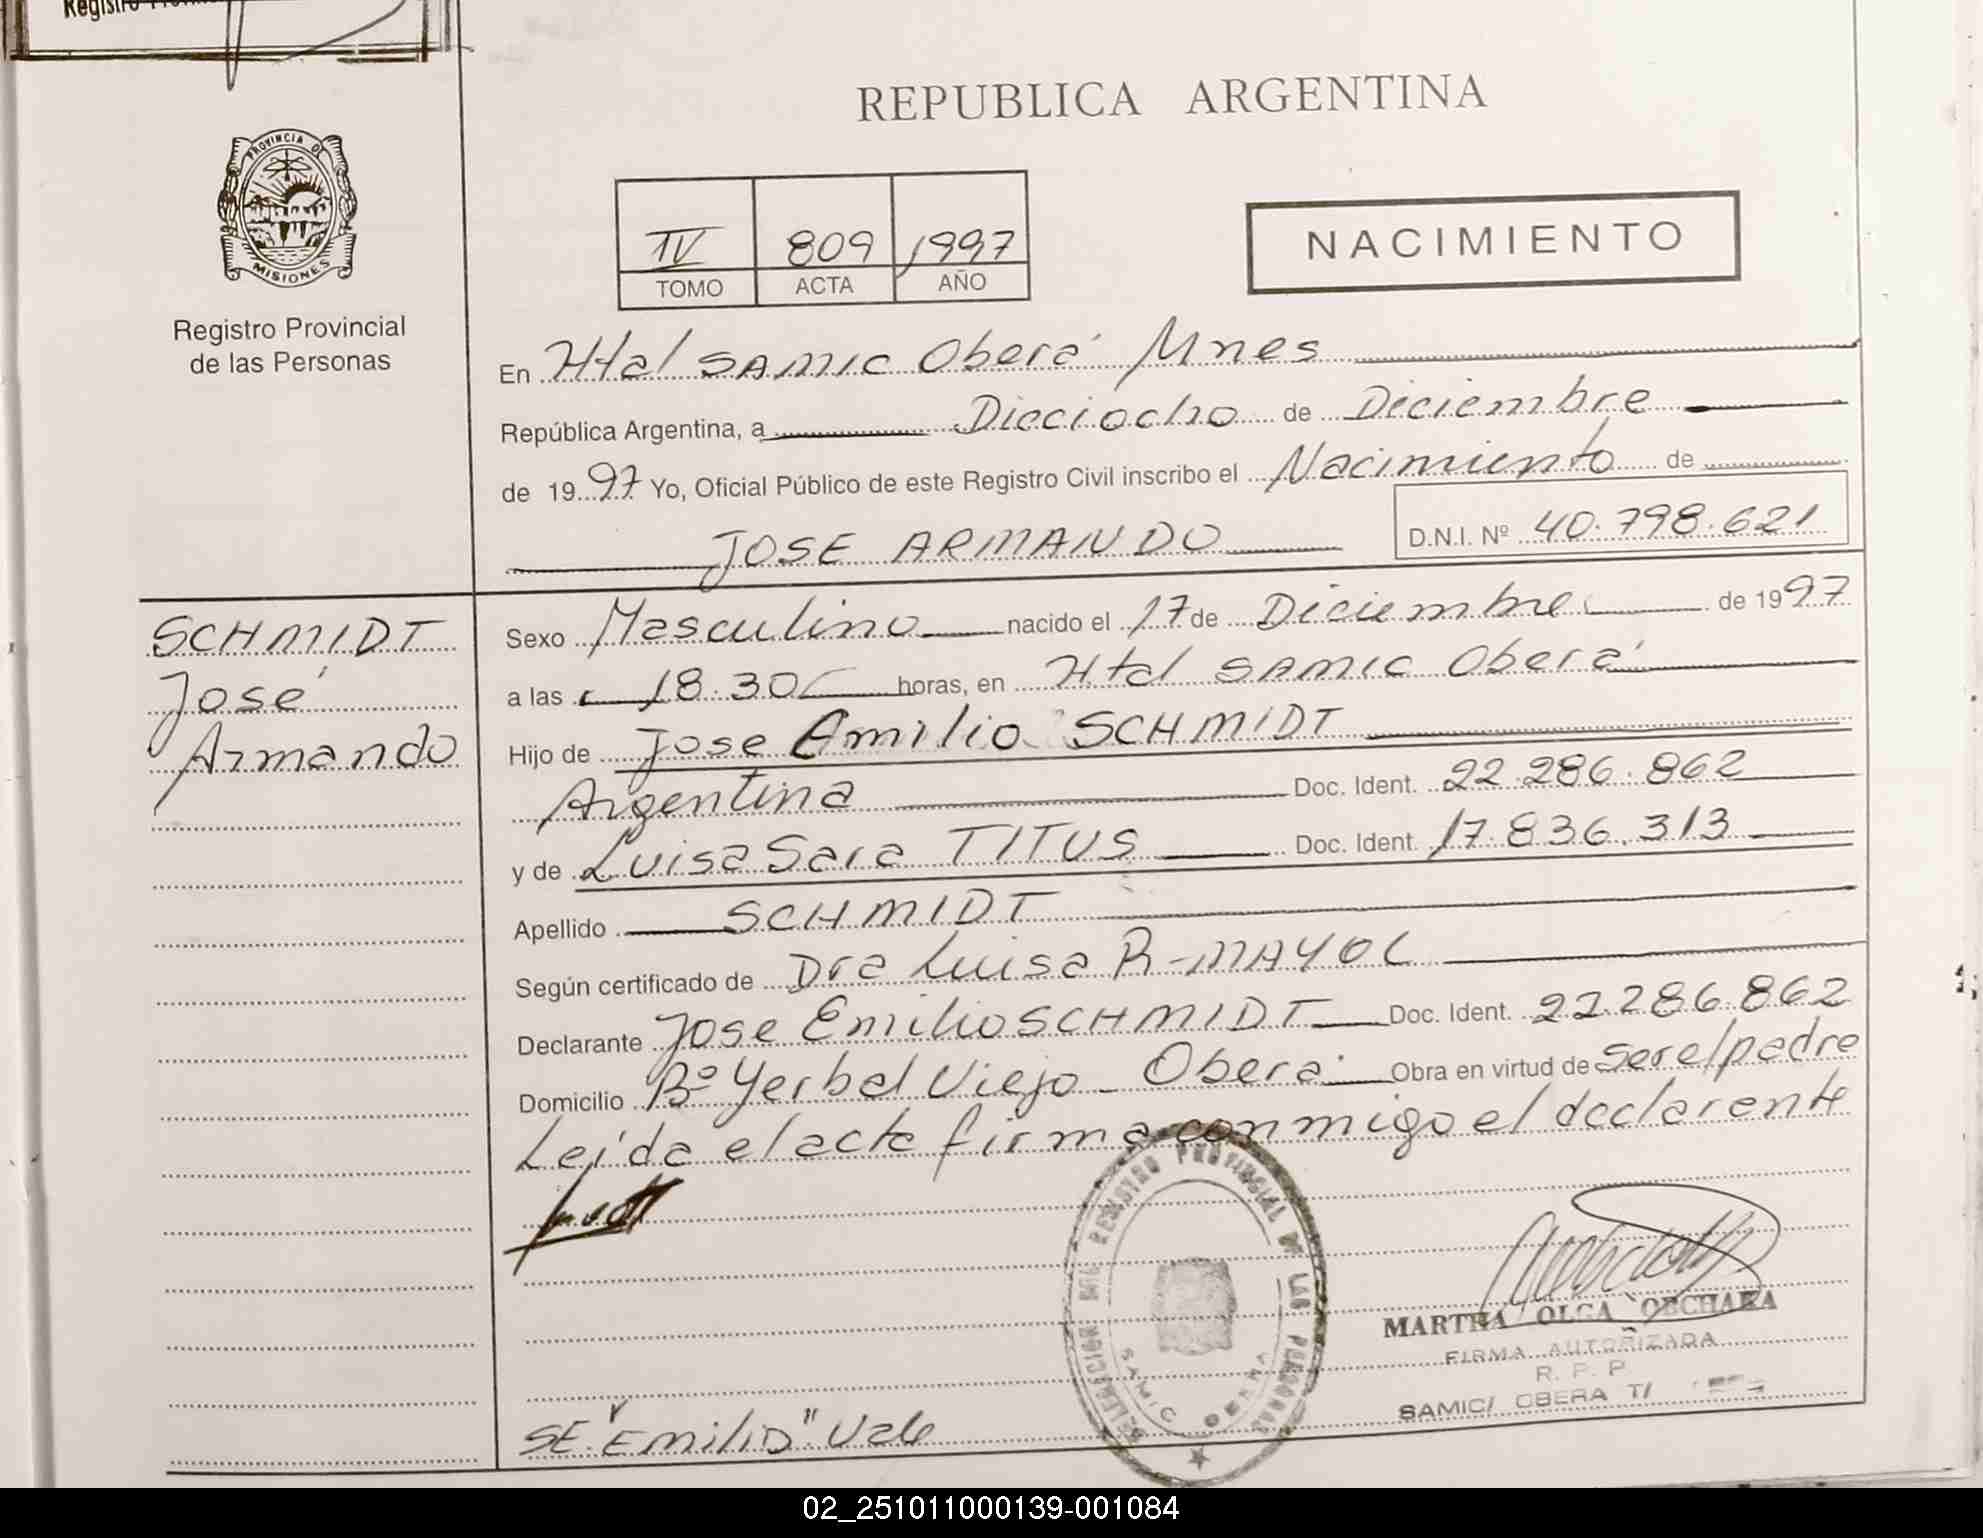 Registro Provin
REPUBLICA ARGENTINA
PROVINCIA DE
MISIONES
Registro Provincial
de las Personas
IV 809 1997
TOMO ACTA AÑO
NACIMIENTO
En Htal SAMIC Oberá Mnes
República Argentina, a Dieciocho de Diciembre
de 1997 Yo, Oficial Público de este Registro Civil inscribo el Nacimiento de
JOSE ARMANDO D.N.I. Nº 40.798.621
SCHMIDT
José
Armando
Sexo Masculino nacido el 17 de Diciembre de 1997
a las 18.30 horas, en Htal SAMIC Oberá
Hijo de Jose Emilio SCHMIDT
Argentina Doc. Ident. 22.286.862
y de Luisa Sara TITUS Doc. Ident. 17.836.313
Apellido SCHMIDT
Según certificado de Dra Luisa R-MAYOL
Declarante Jose Emilio SCHMIDT Doc. Ident. 22.286.862
Domicilio Bº Yerbal Viejo - Oberá Obra en virtud de ser el padre
Leída el acta firma conmigo el declarante
DELEGACION DEL REGISTRO PROVINCIAL DE LAS PERSONAS
SAMIC OBERA
MARTHA OLGA OECHARA
FIRMA AUTORIZADA
R. P. P
SAMIC/ OBERA
SE "Emilio" Vale
02_251011000139-001084